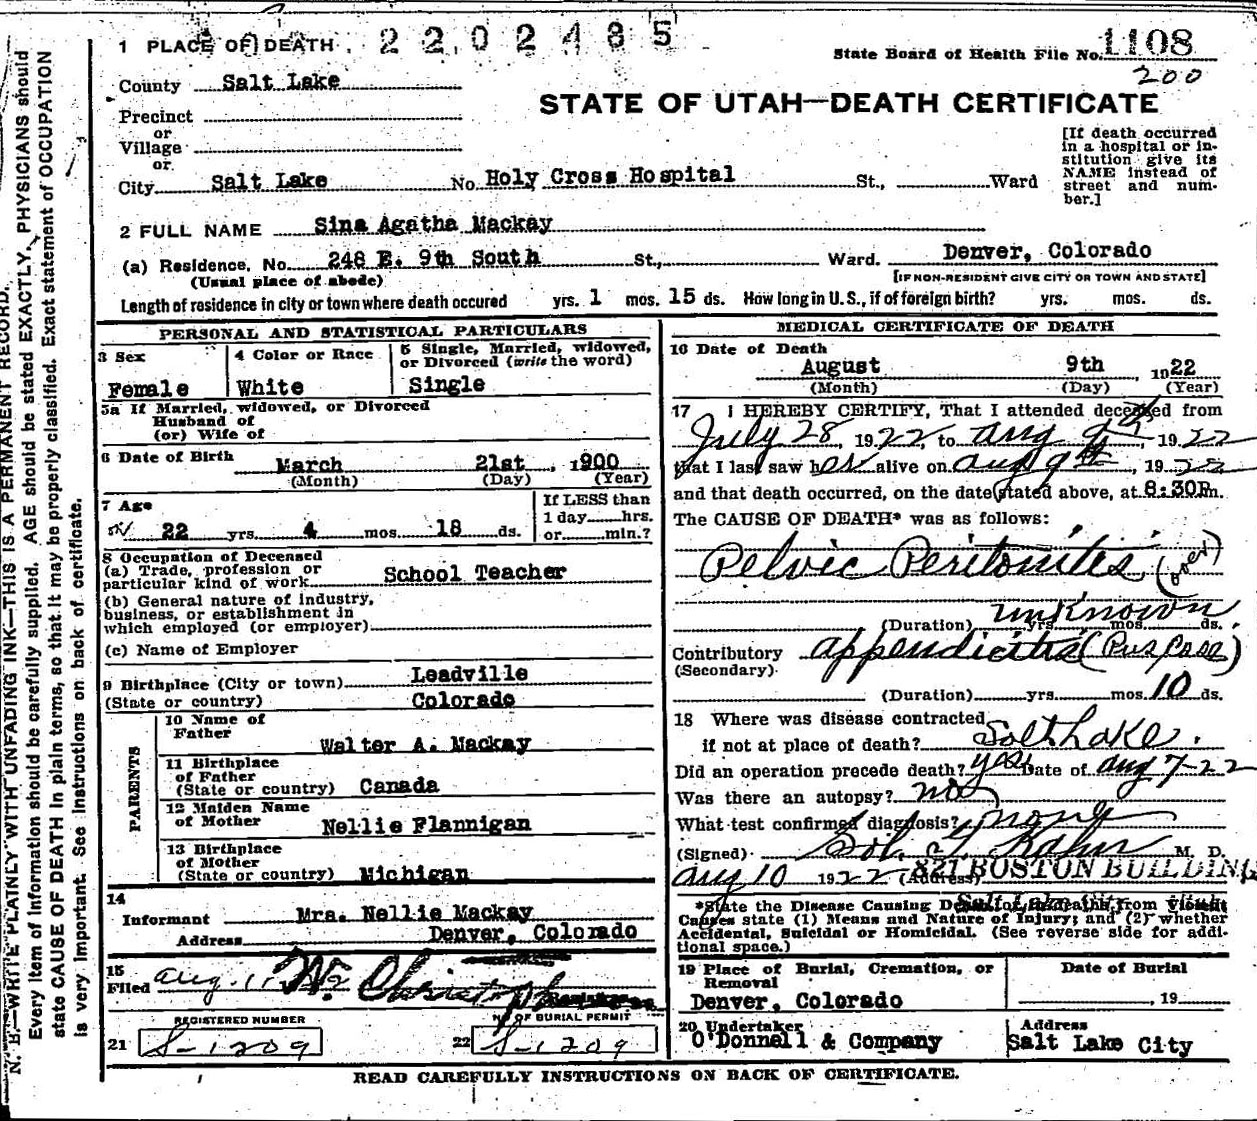 1 PLACE OF DEATH 2202435
State Board of Health File No. 1108
200
County Salt Lake
STATE OF UTAH—DEATH CERTIFICATE
Precinct
or
Village
or
City Salt Lake No. Holy Cross Hospital St., Ward
[If death occurred
in a hospital or in-
stitution give its
NAME instead of
street and num-
ber.]
2 FULL NAME Sina Agatha Mackay
(a) Residence. No. 248 E. 9th South St., Ward. Denver, Colorado
(Usual place of abode) [IF NON-RESIDENT GIVE CITY OR TOWN AND STATE]
Length of residence in city or town where death occured yrs. 1 mos. 15 ds. How long in U. S., if of foreign birth? yrs. mos. ds.
PERSONAL AND STATISTICAL PARTICULARS
3 Sex
Female
4 Color or Race
White
5 Single, Married, widowed,
or Divorced (write the word)
Single
5a If Married, widowed, or Divorced
Husband of
(or) Wife of
6 Date of Birth March 21st, 1900
(Month) (Day) (Year)
7 Age
22 yrs. 4 mos. 18 ds.
If LESS than
1 day hrs.
or min.?
8 Occupation of Deceased
(a) Trade, profession or
particular kind of work School Teacher
(b) General nature of industry,
business, or establishment in
which employed (or employer)
(c) Name of Employer
9 Birthplace (City or town) Leadville
(State or country) Colorado
PARENTS
10 Name of
Father Walter A. Mackay
11 Birthplace
of Father
(State or country) Canada
12 Maiden Name
of Mother Nellie Flannigan
13 Birthplace
of Mother
(State or country) Michigan
14
Informant Mrs. Nellie Mackay
Address Denver, Colorado
15
Filed Aug. W. Christoph
Registrar
REGISTERED NUMBER
21 S-1209
NO OF BURIAL PERMIT
22 S-1209
MEDICAL CERTIFICATE OF DEATH
16 Date of Death
August 9th 1922
(Month) (Day) (Year)
17 I HEREBY CERTIFY, That I attended deceased from
July 28, 1922 to Aug 9th, 1922
that I last saw her alive on Aug 9th, 1922
and that death occurred, on the date stated above, at 8:30P.m.
The CAUSE OF DEATH* was as follows:
Pelvic Peritonitis (over)
unknown
(Duration) yrs. mos. ds.
Contributory appendicitis (Pus Case)
(Secondary)
(Duration) yrs. mos. 10 ds.
18 Where was disease contracted
if not at place of death? Salt Lake.
Did an operation precede death? yes Date of Aug 7-22
Was there an autopsy? no
What test confirmed diagnosis? none
(Signed) Sol. G. Kahn M. D.
Aug 10 1922 (Address) 821 BOSTON BUILDING
Salt Lake
*State the Disease Causing Death, or in deaths from Violent
Causes state (1) Means and Nature of Injury; and (2) whether
Accidental, Suicidal or Homicidal. (See reverse side for addi-
tional space.)
19 Place of Burial, Cremation, or
Removal
Denver, Colorado
Date of Burial
, 19
20 Undertaker
O'Donnell & Company
Address
Salt Lake City
READ CAREFULLY INSTRUCTIONS ON BACK OF CERTIFICATE.
N. B.—WRITE PLAINLY WITH UNFADING INK—THIS IS A PERMANENT RECORD.
Every item of information should be carefully supplied. AGE should be stated EXACTLY. PHYSICIANS should
state CAUSE OF DEATH in plain terms, so that it may be properly classified. Exact statement of OCCUPATION
is very important. See instructions on back of certificate.